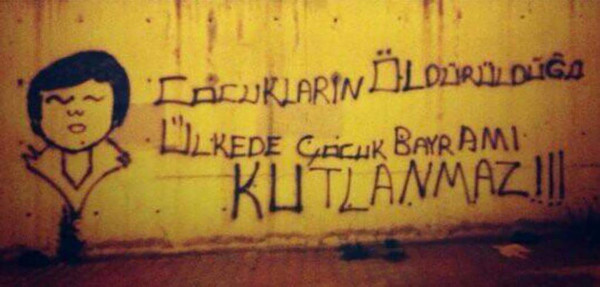 ÇOCUKLARIN ÖLDÜRÜLDÜĞÜ
ÜLKEDE ÇOCUK BAYRAMI
KUTLANMAZ!!!